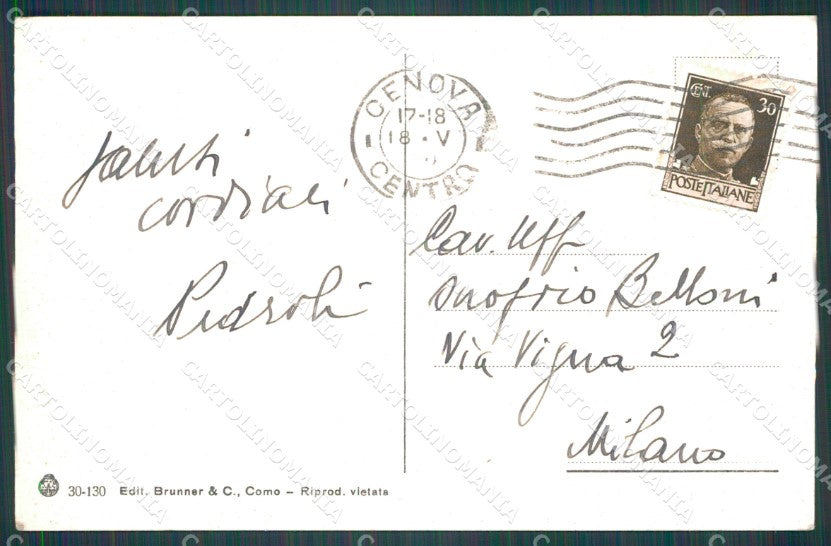 GENOVA
17-18
18 · V
CENTRO
CENT. 30
POSTE ITALIANE
Saluti
cordiali
Pedroli
Cav. Uff
Onofrio Belloni
Via Vigna 2
Milano
30-130 Edit. Brunner & C., Como – Riprod. vietata
CARTOLINOMANIA